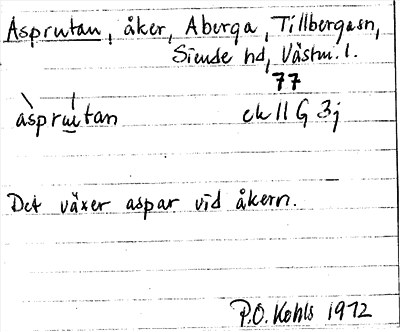 Asprutan, åker, Aberga, Tillbergasn,
Siende hd, Västm. l.
77
àsprútan ek 11 G 3j
Det växer aspar vid åkern.
P.O. Kohls 1972